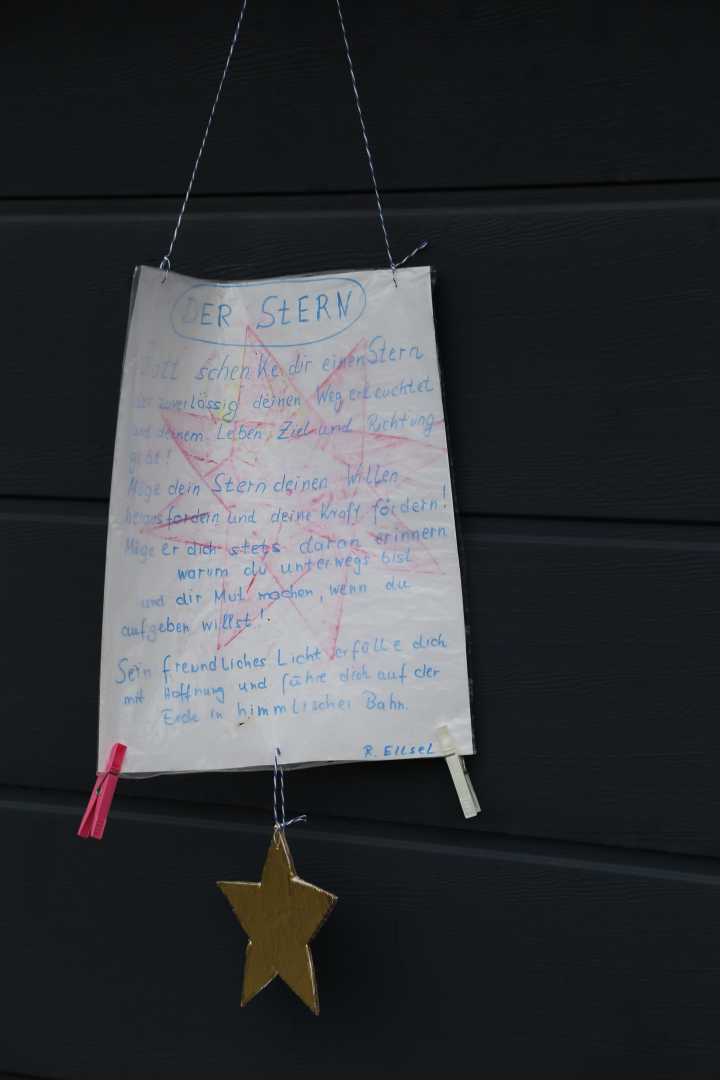 DER STERN
Gott schenke dir einen Stern
der zuverlässig deinen Weg erleuchtet
und deinem Leben, Ziel und Richtung
gibt!
Möge dein Stern deinen Willen
herausfordern und deine Kraft fördern!
Möge er dich stets daran erinnern
warum du unterwegs bist
und dir Mut machen, wenn du
aufgeben willst!
Sein freundliches Licht erfülle dich
mit Hoffnung und führe dich auf der
Erde in himmlischer Bahn.
R. Ellsel